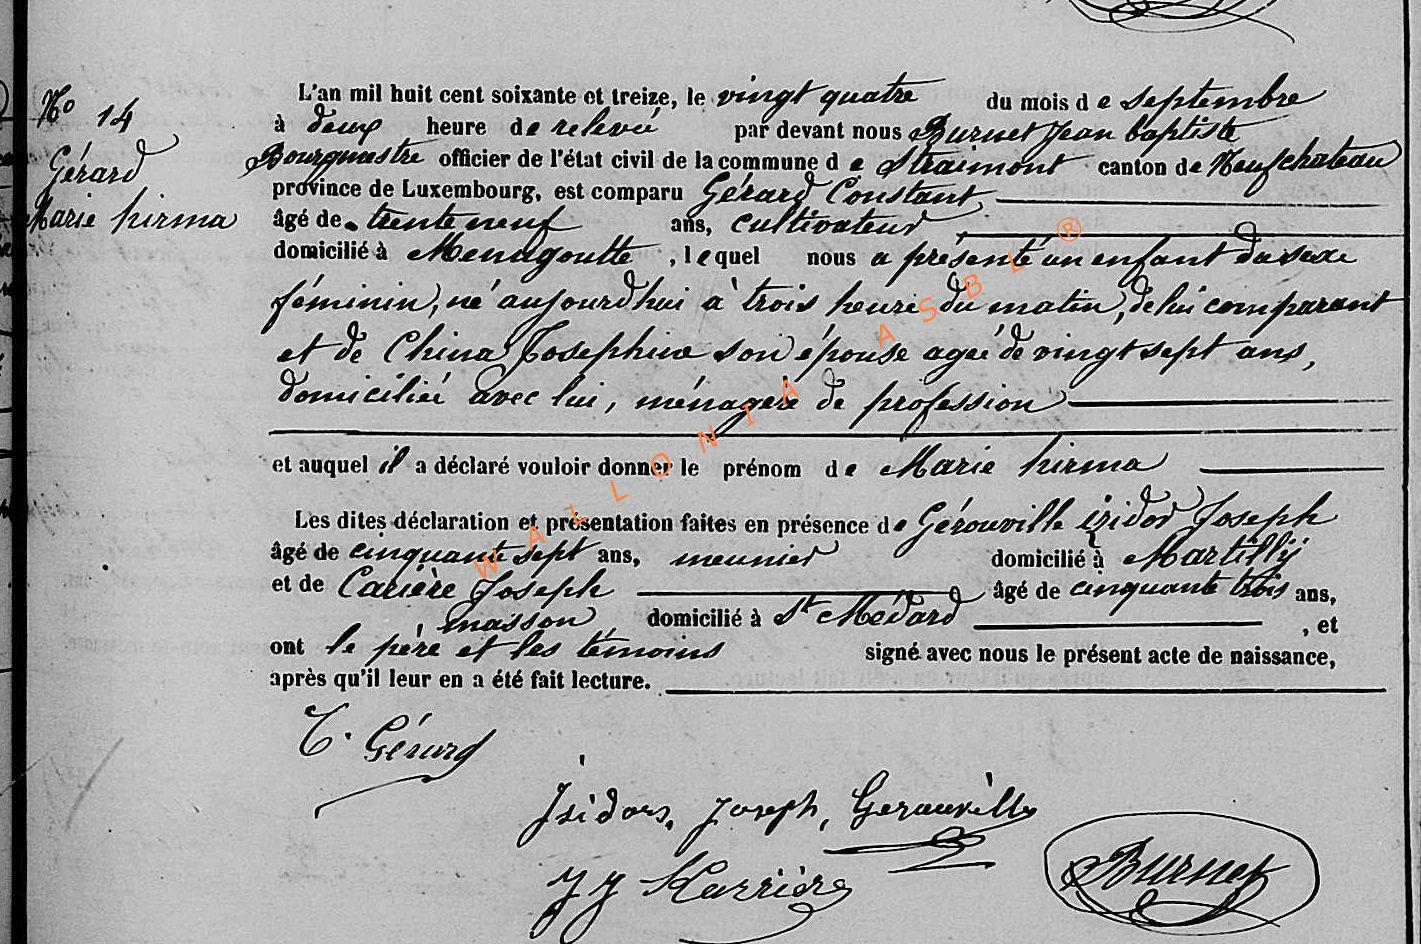 No 14
Gérard
Marie hirma
L'an mil huit cent soixante et treize, le vingt quatre du mois de septembre
à deux heure de relevée par devant nous Burnet Jean baptiste
Bourgmestre officier de l'état civil de la commune de Straimont canton de Neufchateau
province de Luxembourg, est comparu Gérard Constant
âgé de trente neuf ans, cultivateur
domicilié à Menugoutte, lequel nous a présenté un enfant du sexe
féminin, né aujourd'hui à trois heure du matin, de lui comparant
et de China Josephine son épouse agée de vingt sept ans,
domiciliée avec lui, ménagère de profession
et auquel il a déclaré vouloir donner le prénom de Marie hirma
Les dites déclaration et présentation faites en présence de Gérouville izidor Joseph
âgé de cinquante sept ans, meunier domicilié à Martilly
et de Carière Joseph âgé de cinquante trois ans,
masson domicilié à St Médard, et
ont le père et les témoins signé avec nous le présent acte de naissance,
après qu'il leur en a été fait lecture.
C. Gérard
Isidore, Joseph, Gerouville
J J Karrière
Burnet
WALLONIA ASBL ®